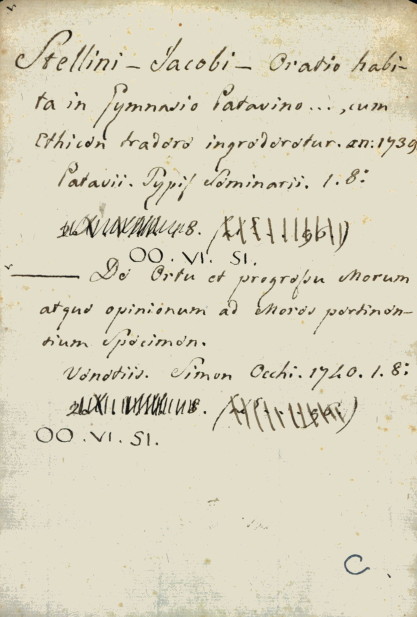 Stellini - Jacobi - Oratio habi-
ta in Gymnasio Patavino..., cum
Ethicen tradere ingrederetur. an: 1739
Patavii. Typis Seminarii. 1. 8:
OO. VI. 51.
——— De Ortu et progressu Morum
atque opinionum ad Mores pertinen-
tium Specimen.
Venetiis. Simon Occhi. 1740. 1. 8:
OO. VI. 51.
C